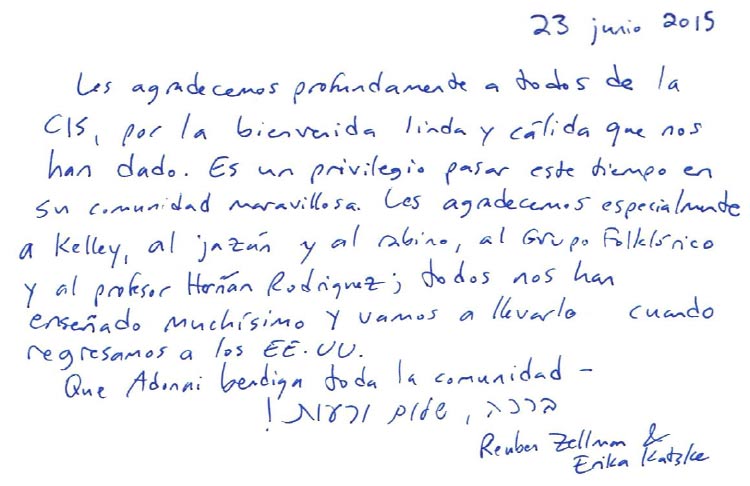 23 junio 2015
Les agradecemos profundamente a todos de la
CIS, por la bienvenida linda y cálida que nos
han dado. Es un privilegio pasar este tiempo en
su comunidad maravillosa. Les agradecemos especialmente
a Kelley, al jazán y al rabino, al Grupo Folklórico
y al profesor Hernán Rodriguez; todos nos han
enseñado muchísimo y vamos a llevarlo cuando
regresamos a los EE.UU.
Que Adonai bendiga toda la comunidad -
ברכה, שלום ורעות!
Reuben Zellman &
Erika Katske